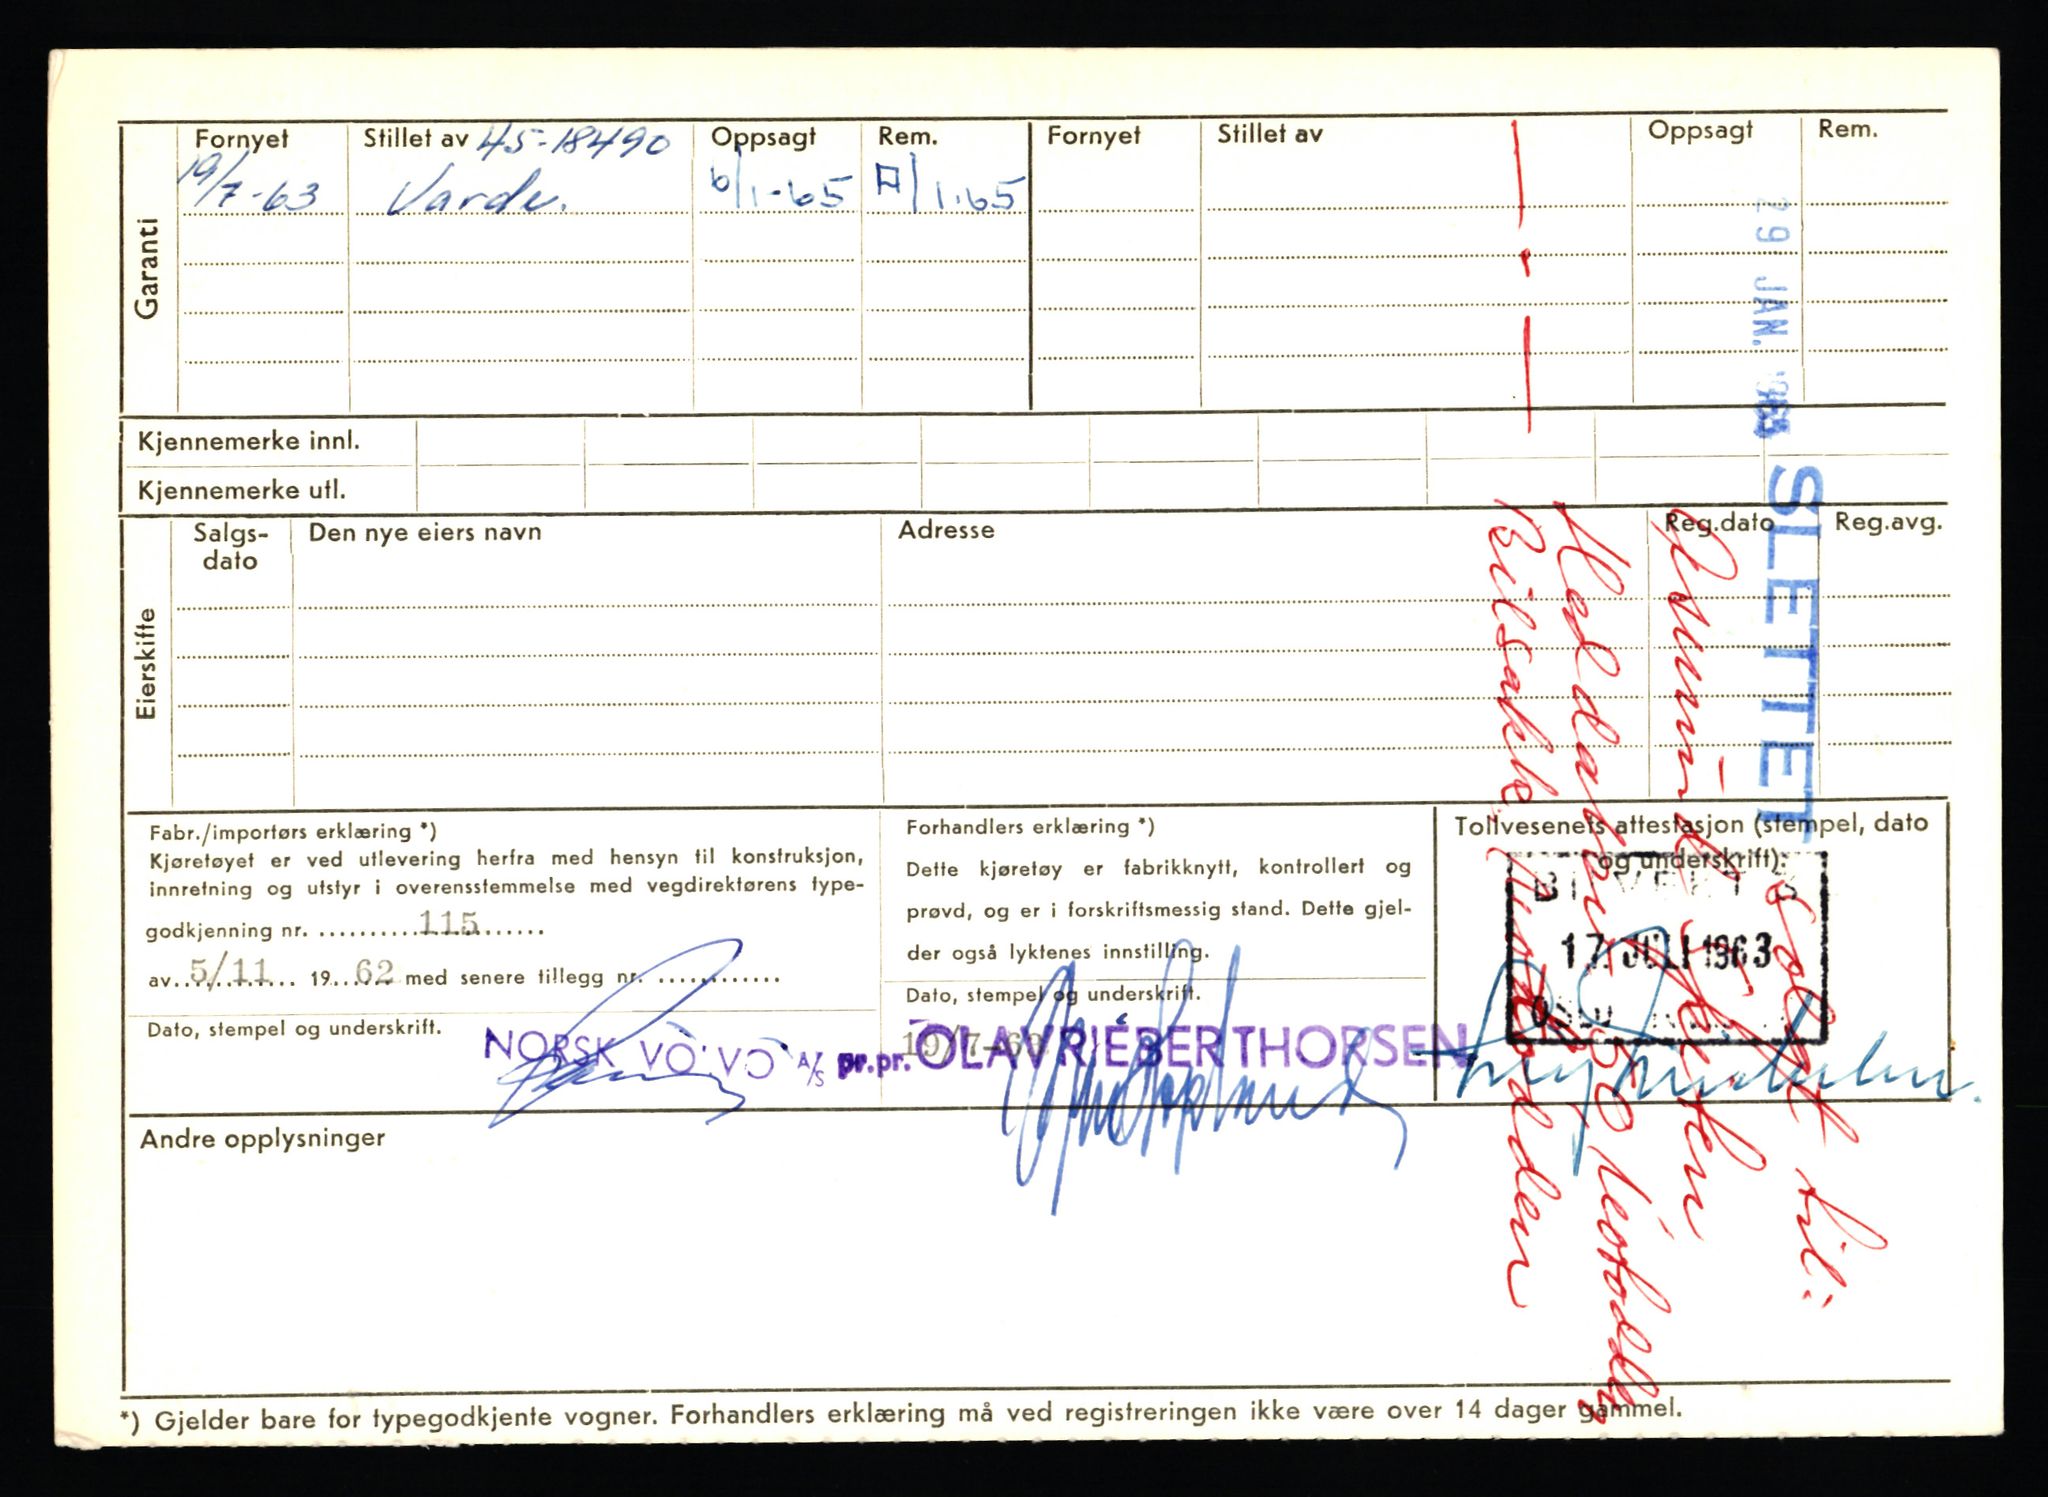 Garanti
Fornyet Stillet av 45-18490 Oppsagt Rem. Fornyet Stillet av Oppsagt Rem.
19/7-63 Varde. 6/1-65 /1.65
29 JAN. 1965
Kjennemerke innl.
Kjennemerke utl.
SLETTET
Eierskifte
Salgs-
dato
Den nye eiers navn Adresse Reg.dato Reg.avg.
solgt til:
Bilsakk. Notodden
Fabr./importørs erklæring *)
Kjøretøyet er ved utlevering herfra med hensyn til konstruksjon,
innretning og utstyr i overensstemmelse med vegdirektørens type-
godkjenning nr. 115
av 5/11 19 62 med senere tillegg nr.
Dato, stempel og underskrift.
NORSK VOLVO A/S
Forhandlers erklæring *)
Dette kjøretøy er fabrikknytt, kontrollert og
prøvd, og er i forskriftsmessig stand. Dette gjel-
der også lyktenes innstilling.
Dato, stempel og underskrift.
19/7-63
pr.pr. OLAV RIEBER THORSEN
Tollvesenets attestasjon (stempel, dato
og underskrift):
17. JULI 1963
Andre opplysninger
*) Gjelder bare for typegodkjente vogner. Forhandlers erklæring må ved registreringen ikke være over 14 dager gammel.